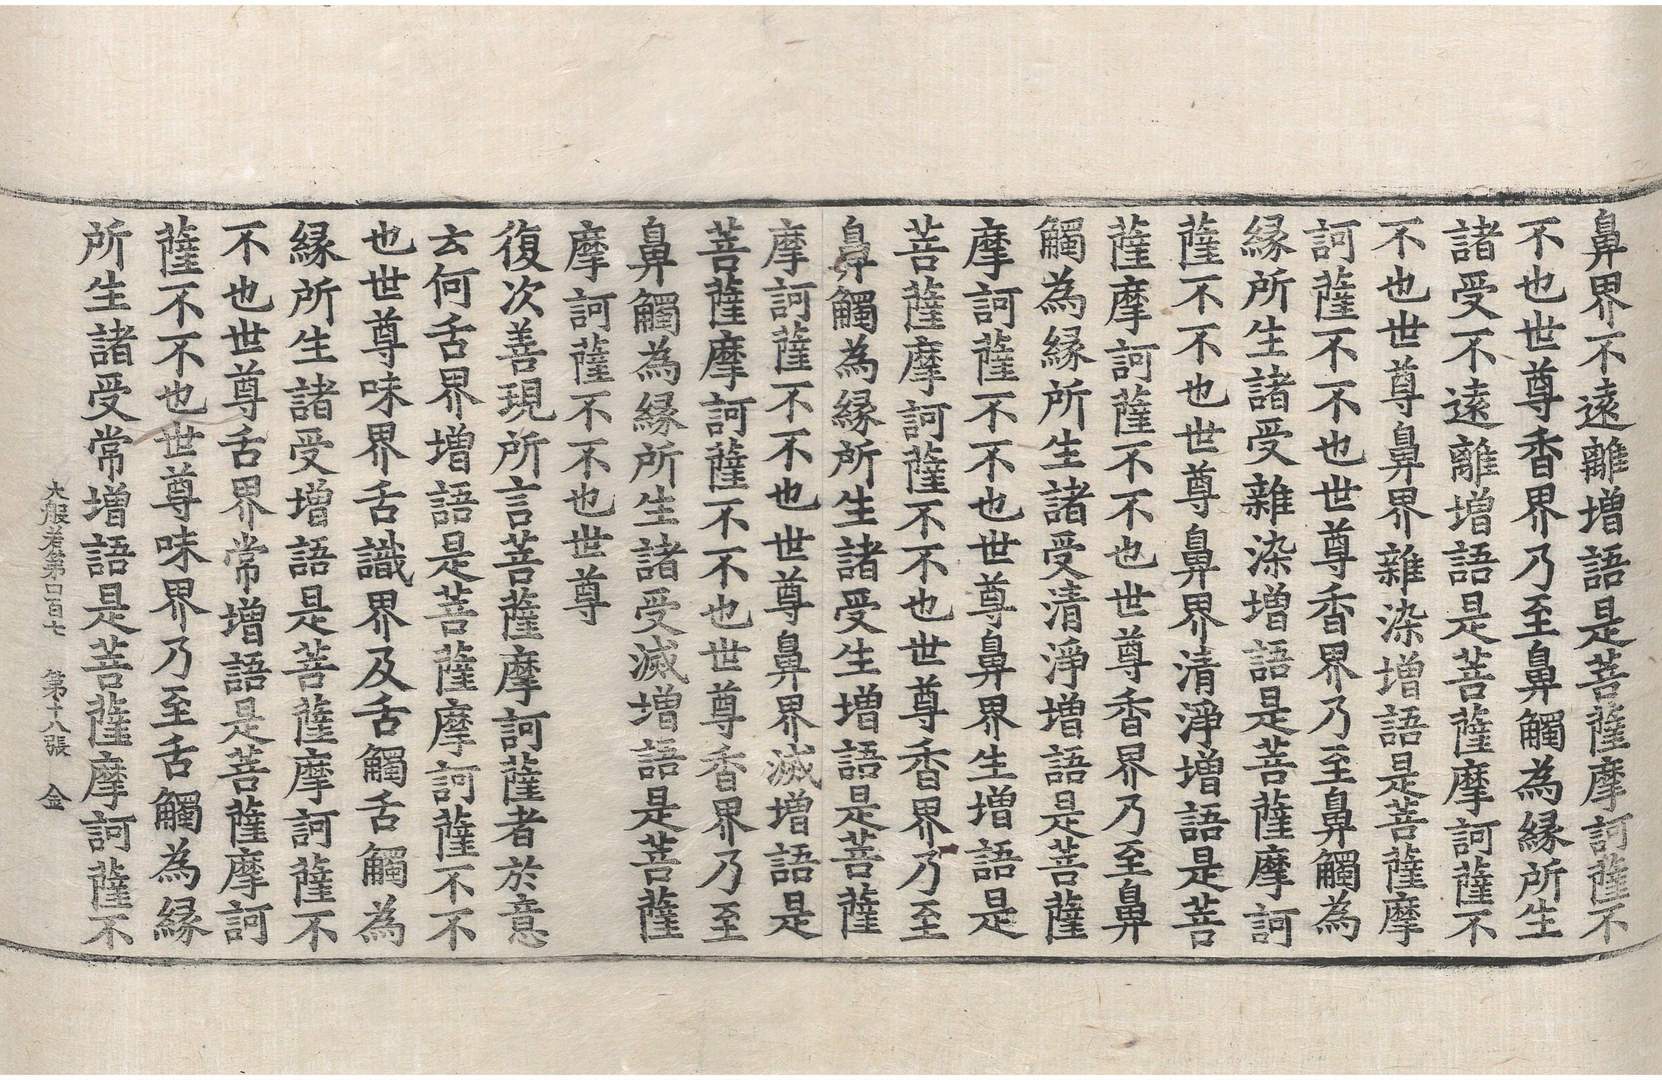 鼻界不遠離増語是菩薩摩訶薩不
不也世尊香界乃至鼻觸為縁所生
諸受不遠離増語是菩薩摩訶薩不
不也世尊鼻界雜染増語是菩薩摩
訶薩不不也世尊香界乃至鼻觸為
縁所生諸受雜染増語是菩薩摩訶
薩不不也世尊鼻界清淨増語是菩
薩摩訶薩不不也世尊香界乃至鼻
觸為縁所生諸受清淨増語是菩薩
摩訶薩不不也世尊鼻界生増語是
菩薩摩訶薩不不也世尊香界乃至
鼻觸為縁所生諸受生増語是菩薩
摩訶薩不不也世尊鼻界滅増語是
菩薩摩訶薩不不也世尊香界乃至
鼻觸為縁所生諸受滅増語是菩薩
摩訶薩不不也世尊
復次善現所言菩薩摩訶薩者於意
云何舌界増語是菩薩摩訶薩不不
也世尊味界舌識界及舌觸舌觸為
縁所生諸受増語是菩薩摩訶薩不
不也世尊舌界常増語是菩薩摩訶
薩不不也世尊味界乃至舌觸為縁
所生諸受常増語是菩薩摩訶薩不
大般若第四百七 第十八張 金